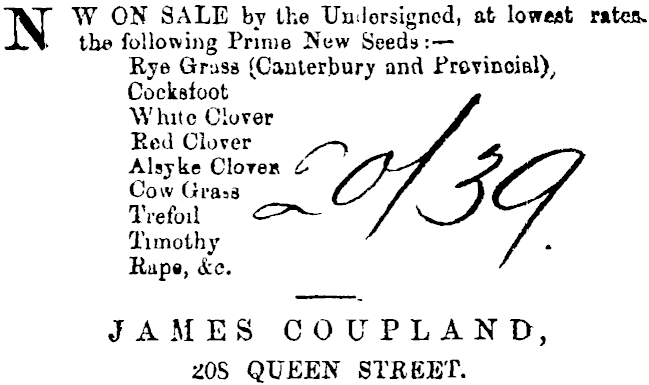 N W ON SALE by the Undersigned, at lowest rates.
the following Prime New Seeds:—
Rye Grass (Canterbury and Provincial),
Cocksfoot
White Clover
Red Clover
Alsyke Clover
Cow Grass
Trefoil
Timothy
Rape, &c.
20/39.
JAMES COUPLAND,
208 QUEEN STREET.